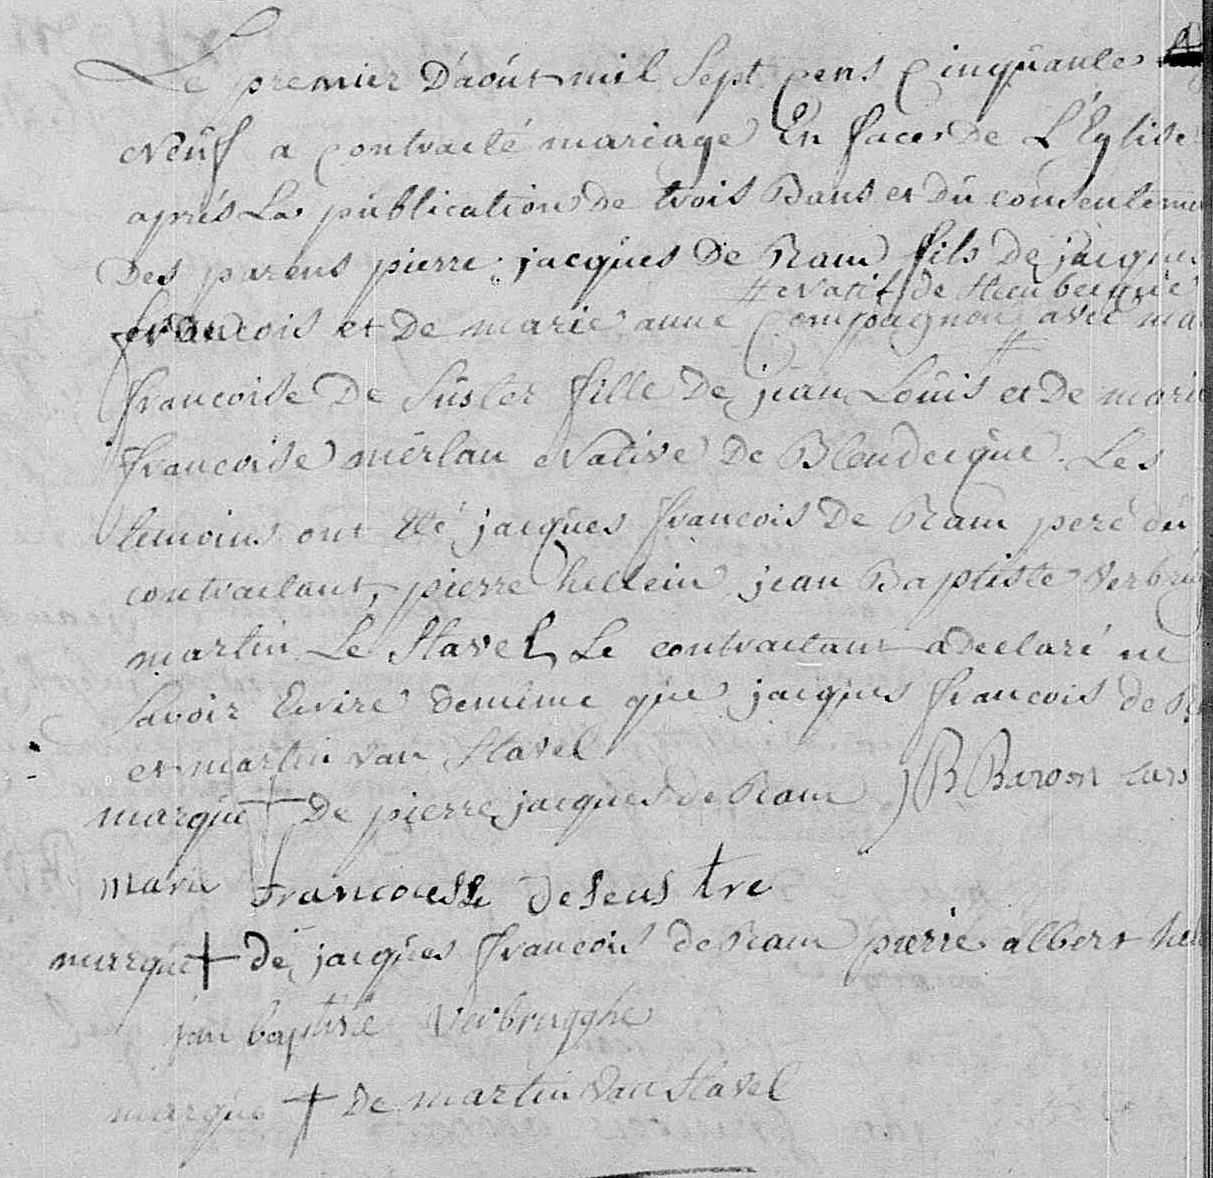 Le premier D'août mil Sept cens Cinquante
Neûf a contracté mariage En face de L'Eglise
aprés La publication de trois Bans et dû consenteme
Des parens pierre jacques De Ram fils de jacque
# Natif de Steenbecque
francois et de marie anne Compagnon avec ma
francoise De Sûster fille De jean Loûis et de marie
francoise merlan Native De Blendecque. Les
temoins ont été jacques francois De Ram peré dû
contractant, pierre hellein jean Baptiste Verbrug
martin Le Stavel, Le contractant a declaré ne
savoir Ecrire demême que jacques francois de R
et martin van Stavel
marque + De pierre jacques de Ram JB Baron
marie francoisse deseustre
marque + de jacques francois de Ram pierre albert hel
jan baptiste Verbrugghe
marque + De martin van Stavel